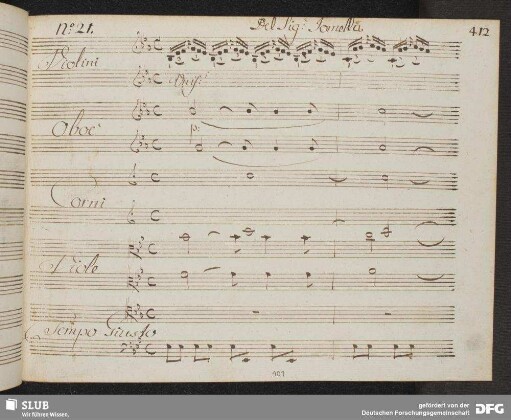 N.º 21.
Del Sig.
412
Violini
Unis:
Oboe
p:
Corni
Viole
Tempo Giusto
SLUB
Wir führen Wissen.
gefördert von der
Deutschen Forschungsgemeinschaft
DFG